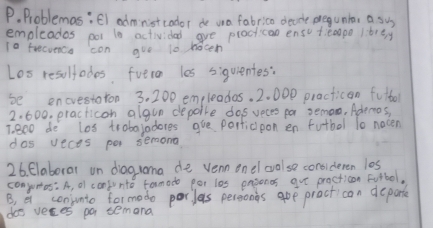 P. Problemas: El administrador de una fabrica decide preguntar a sus
empleados por la actividad que practican en su tiempo libre y
la frecuencia con que lo hacen
Los resultados, fuero los siguientes:
Se encuestaron 3.200 empleados. 2.000 practican futbol
2.600. practican algun deporte dos veces por semana. Ademas,
1.800 de los trabajadores que participan en futbol lo hacen
dos veces por semana
26. Elaborar un diagrama de venn en el cual se consideren los
conjuntos: A, el conjunto formado por las personas que practican futbol.
B, el conjunto formado por las personas que practican deporte
dos veces por semana